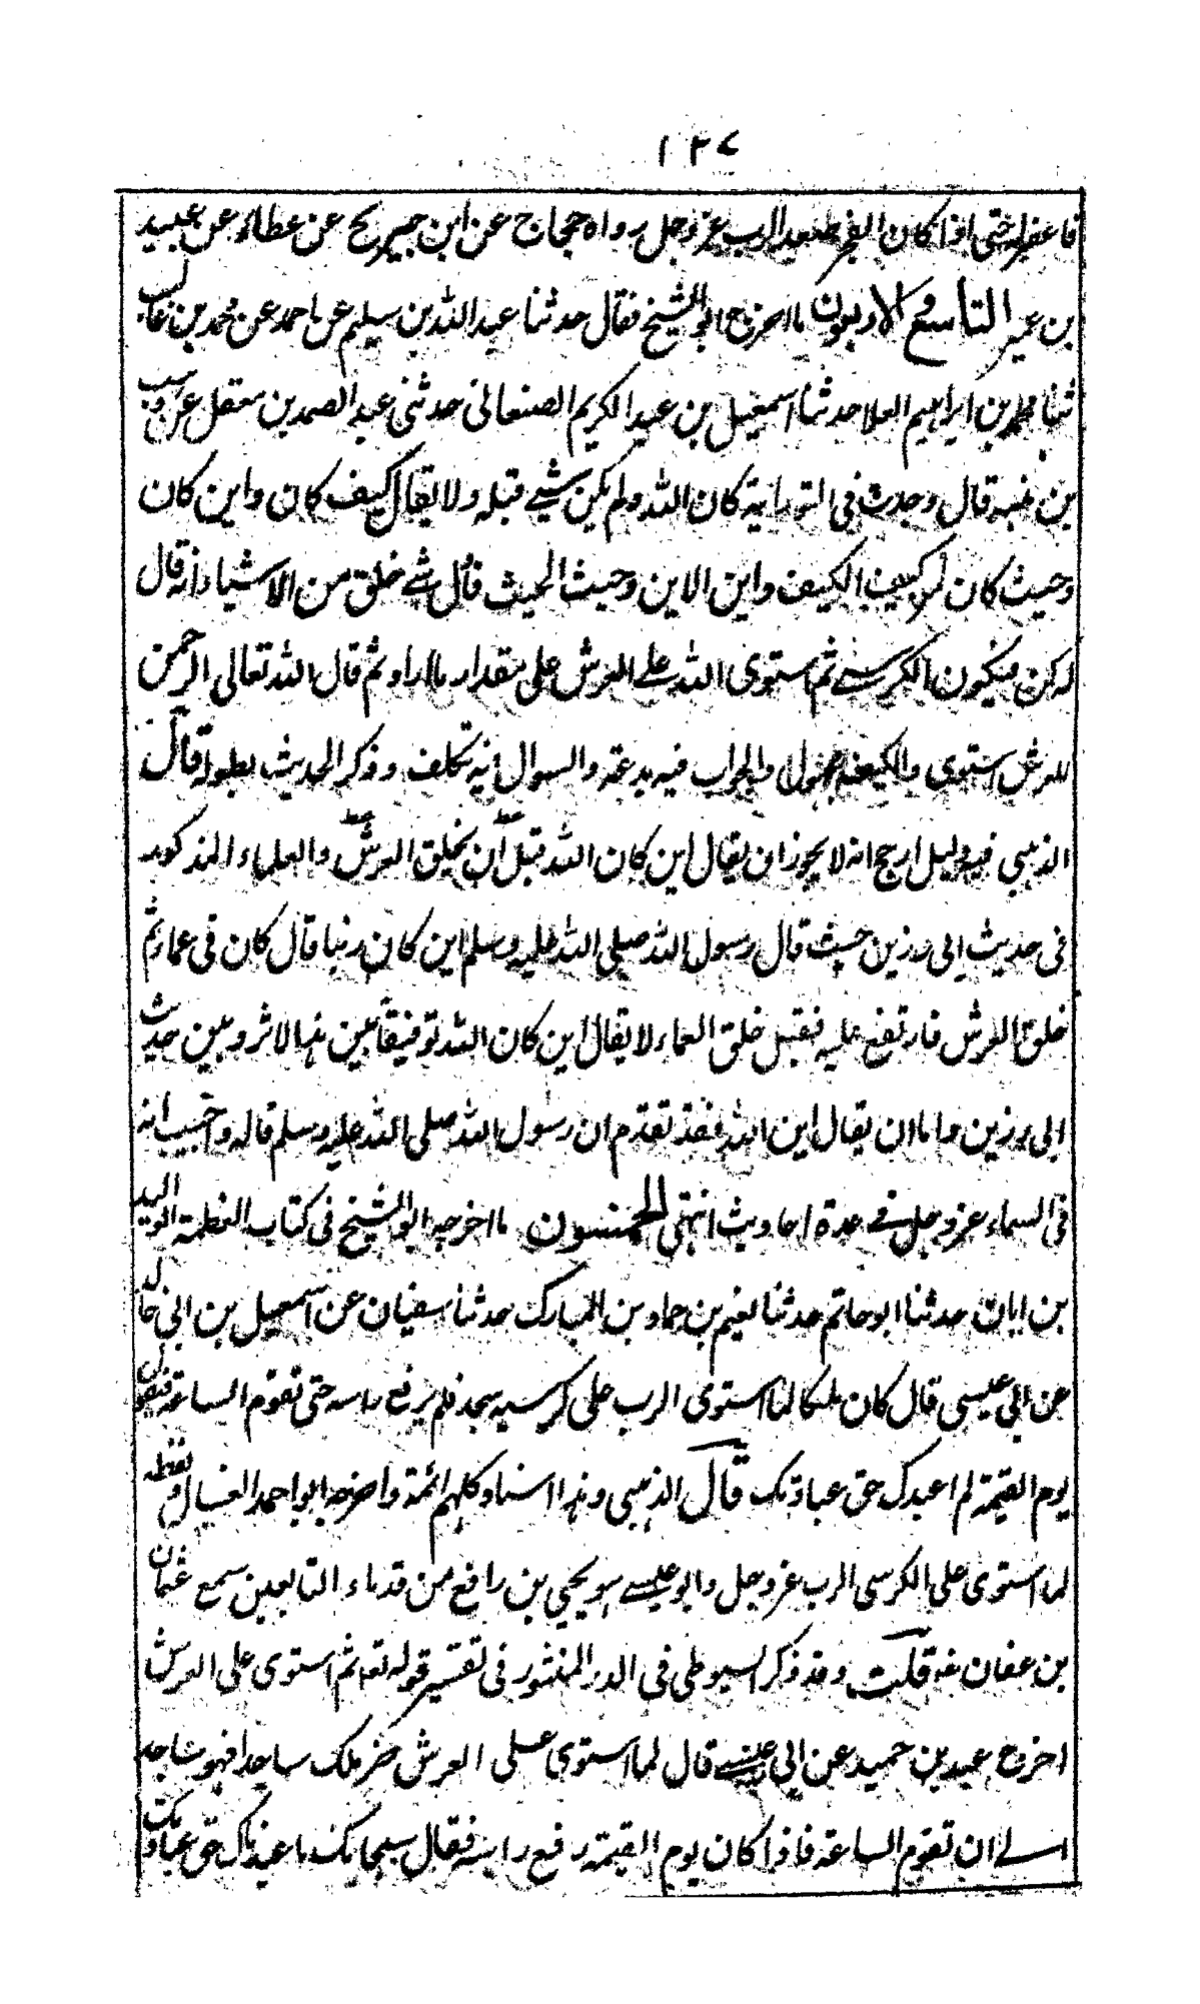 ١٣٧
فاغفر له حتى اذا كان الفجر صعد الرب عز وجل رواه حجاج عن ابن جريج عن عطاء عن عبيد
بن عمير التاسع والاربعون ما اخرج ابو الشيخ فقال حدثنا عبد الله بن سليم عن احمد عن محمد بن غالب
ثنا محمد بن ابراهيم العلا حدثنا اسمعيل بن عبد الكريم الصنعاني حدثني عبد الصمد بن معقل عن وهب
بن منبه قال وجدت في التوراية كان الله ولم يكن شيء قبله ولا يقال كيف كان واين كان
وحيث كان كيف الكيف واين الاين وحيث الحيث فاول شيء خلق من الاشياء انه قال
له كن فيكون الكرسي ثم استوى الله على العرش على مقدار ما اراد ثم قال الله تعالى الرحمن
للعرش استوى والكيف مجهول والجواب فيه بدعة والسوال فيه تكلف وذكر الحديث بطوله قال
الذهبي فيه دليل ارجح انه لا يجوز ان يقال اين كان الله قبل ان يخلق العرش والعلماء المذكور
في حديث ابي رزين حيث قال رسول الله صلى الله عليه وسلم اين كان ربنا قال كان في عماء ثم
خلق العرش فارتفع عليه فقبل خلق العماء لا يقال اين كان الله توفيقا بين هذا الاثر وبين حديث
ابي رزين واما ان يقال اين الله فقد تقدم ان رسول الله صلى الله عليه وسلم قاله واجيب انه
في السماء عز وجل في عدة احاديث انتهى الخمسون ما اخرجه ابو الشيخ في كتاب العظمة الوليد
بن ابان حدثنا ابو حاتم حدثنا نعيم بن حماد بن المبارك حدثنا سفيان عن اسمعيل بن ابي خالد
عن ابي عيسى قال كان ملكا لما استوى الرب على كرسيه سجد فلم يرفع راسه حتى تقوم الساعة فيقول
يوم القيمة لم اعبدك حق عبادتك قال الذهبي وهذا اسناد كلهم ائمة واخرجه ابو احمد العسال ولفظه
لما استوى على الكرسي الرب عز وجل وابو عيسى هو يحيى بن رافع من قدماء التابعين سمع عثمان
بن عفان عنه قلت وقد ذكر السيوطي في الدر المنثور في تفسير قوله تعا ثم استوى على العرش
اخرج عبد بن حميد عن ابي عيسى قال لما استوى على العرش خر ملك ساجدا فهو ساجد
الى ان تقوم الساعة فاذا كان يوم القيمة رفع راسه فقال سبحانك ما عبدناك حق عبادتك